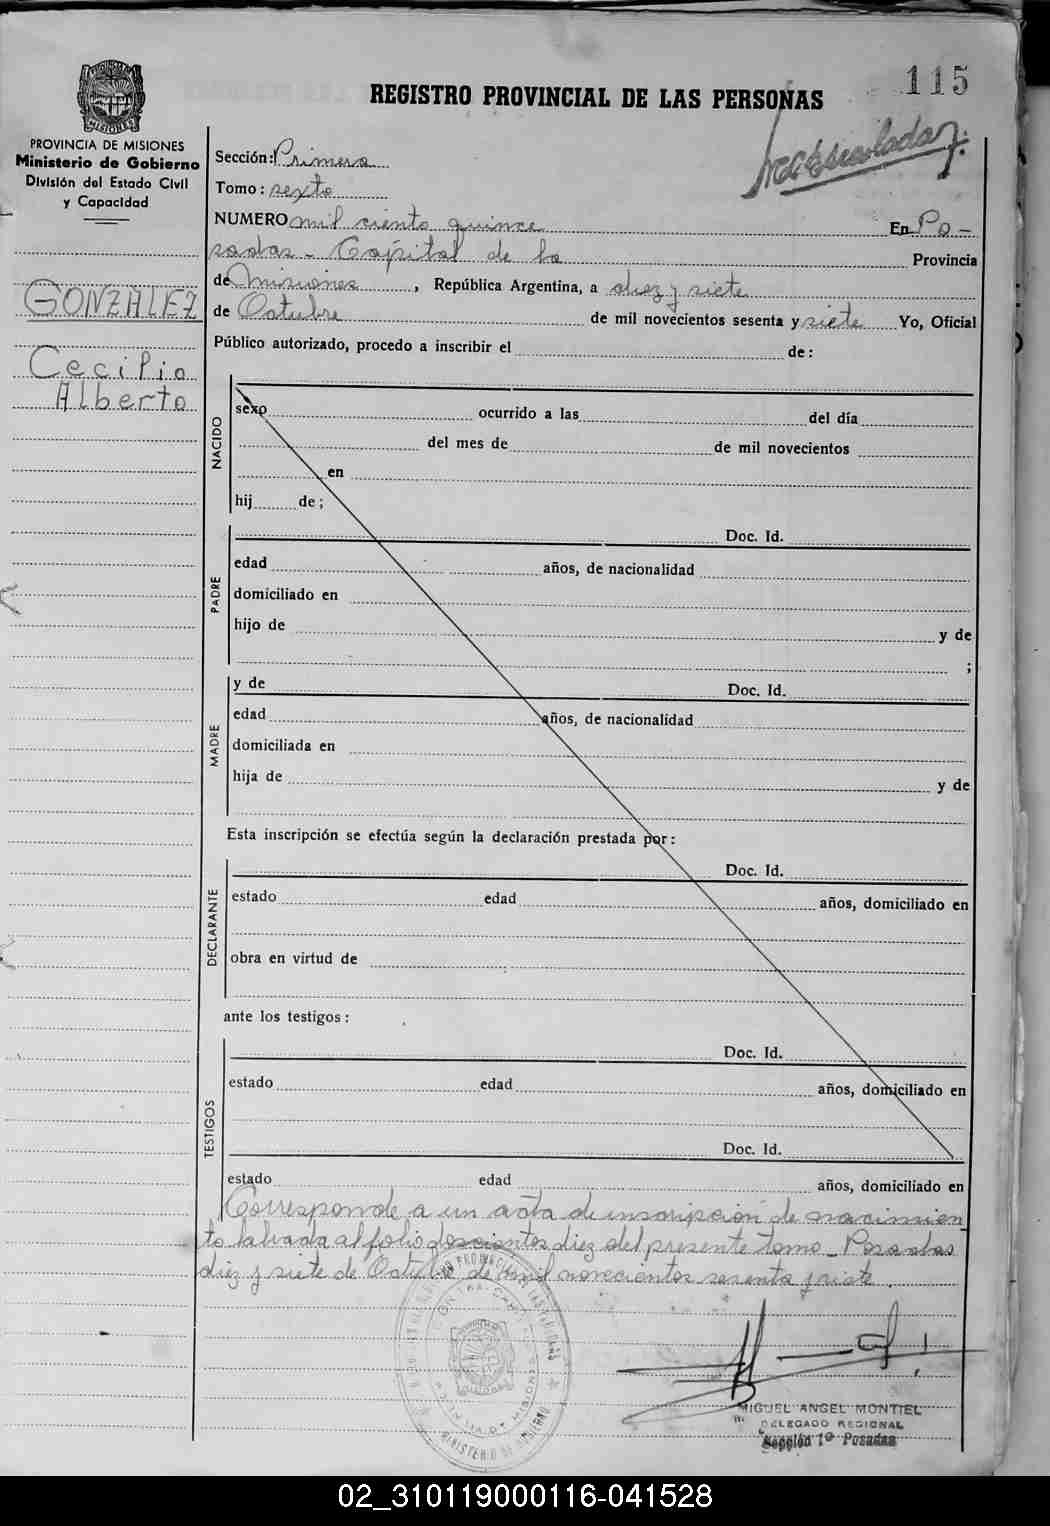 115
REGISTRO PROVINCIAL DE LAS PERSONAS
PROVINCIA DE MISIONES
Ministerio de Gobierno
División del Estado Civil
y Capacidad
Sección: Primera
Tomo: sexto
NUMERO mil ciento quince En Po-
sadas - Capital de la Provincia
de Misiones, República Argentina, a diez y siete
de Octubre de mil novecientos sesenta y siete Yo, Oficial
Público autorizado, procedo a inscribir el de:
GONZALEZ
Cecilio
Alberto
NACIDO
sexo ocurrido a las del día
del mes de de mil novecientos
en
hij de;
PADRE
Doc. Id.
edad años, de nacionalidad
domiciliado en
hijo de y de
;
MADRE
y de Doc. Id.
edad años, de nacionalidad
domiciliada en
hija de y de
Esta inscripción se efectúa según la declaración prestada por:
DECLARANTE
Doc. Id.
estado edad años, domiciliado en
obra en virtud de
ante los testigos:
TESTIGOS
Doc. Id.
estado edad años, domiciliado en
Doc. Id.
estado edad años, domiciliado en
Corresponde a un acta de inscripción de nacimien
to labrada al folio doscientos diez del presente tomo - Posadas
diez y siete de Octubre de mil novecientos sesenta y siete.
MINISTERIO DE GOBIERNO
MIGUEL ANGEL MONTIEL
DELEGADO REGIONAL
Sección 1º Posadas
02_310119000116-041528